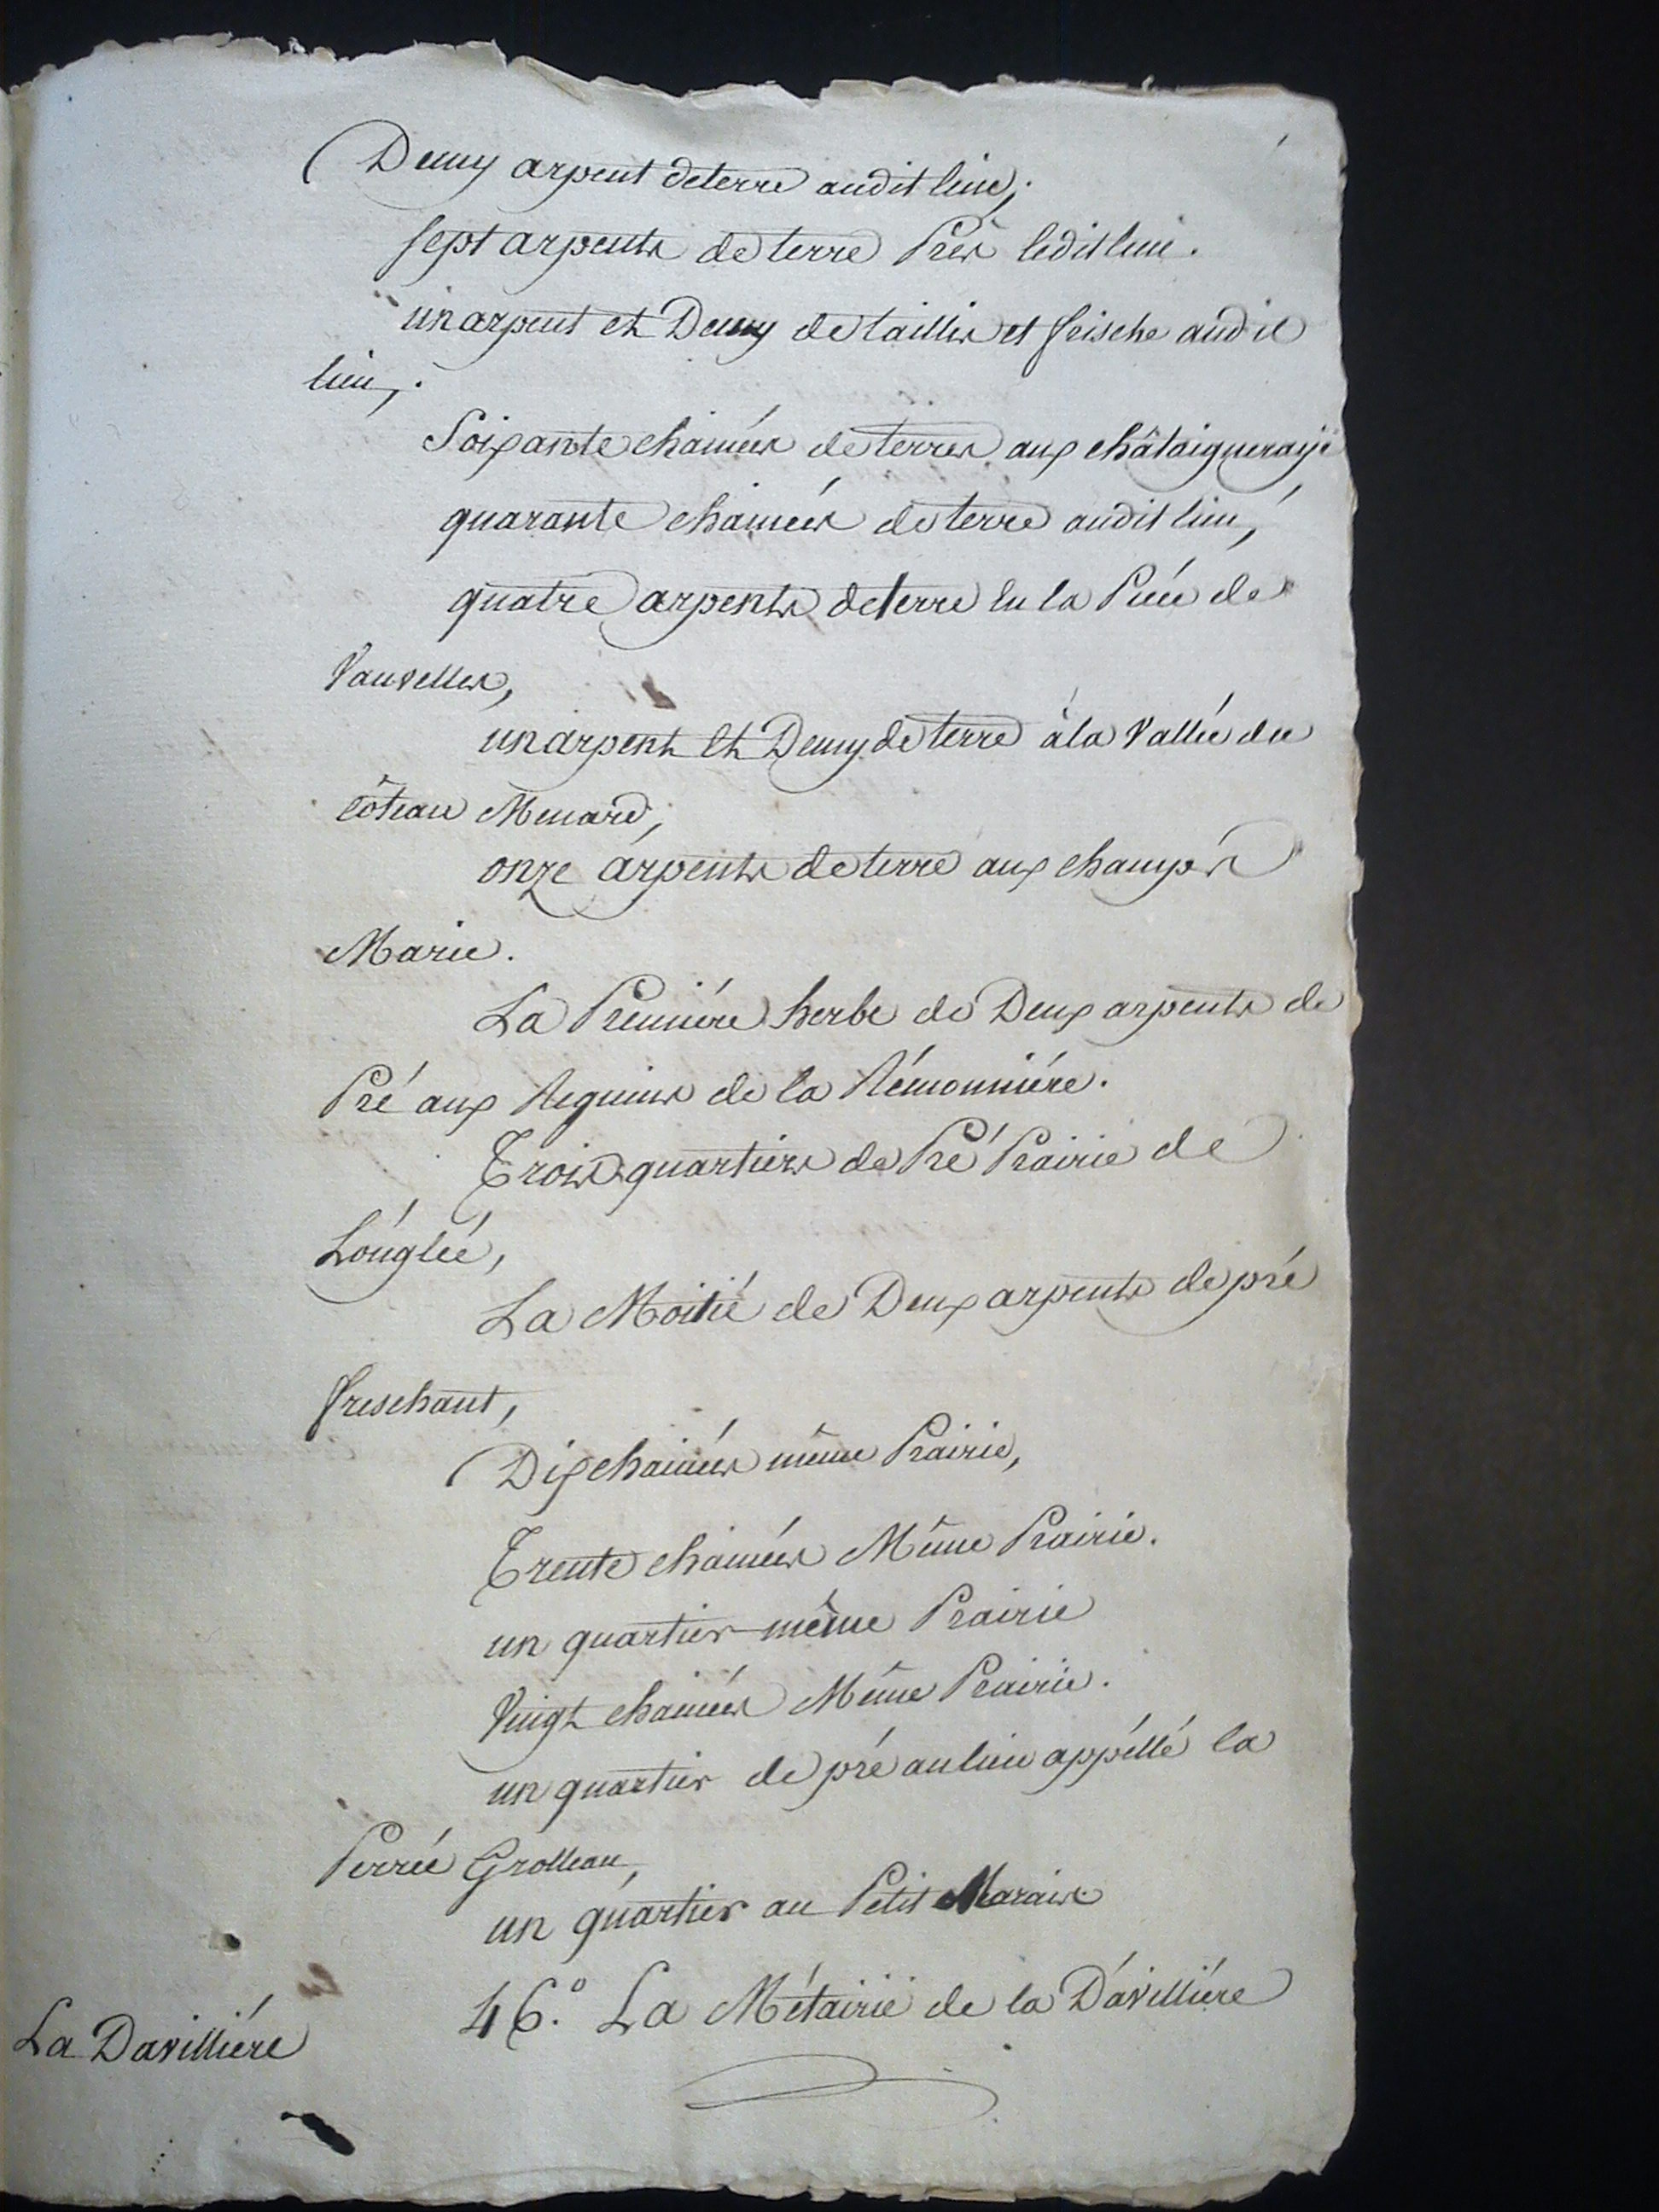 Demy arpent de terre audit lieu,.
sept arpents de terre Près ledit lieu.
un arpent et Demy de taillis et frische audit
lieu,.
Soixante chainées de terres aux châtaigneraye
quarante chainées de terre audit lieu,
quatre arpents de terre en la Piéé de
Vauvelles,
un arpent et Demy de terre à la Vallée du
côteau Menard,
onze arpents de terre aux champs
Marie.
La Premiére herbe de Deux arpents de
Pré aux Seguins de la Rémonniére.
Trois quartiers de Pré Prairie de
Longléé,
La Moitié de Deux arpents de pré
freschaut,
Dix chainées même Prairie,
Trente chainées Même Prairie.
un quartier même Prairie
Vingt chainées Même Prairie.
un quartier de pré au lieu appéllé la
Perrée Grolleau,
un quartier au Petit Marais
46.° La Métairie de la Daviliére
La Davilliére